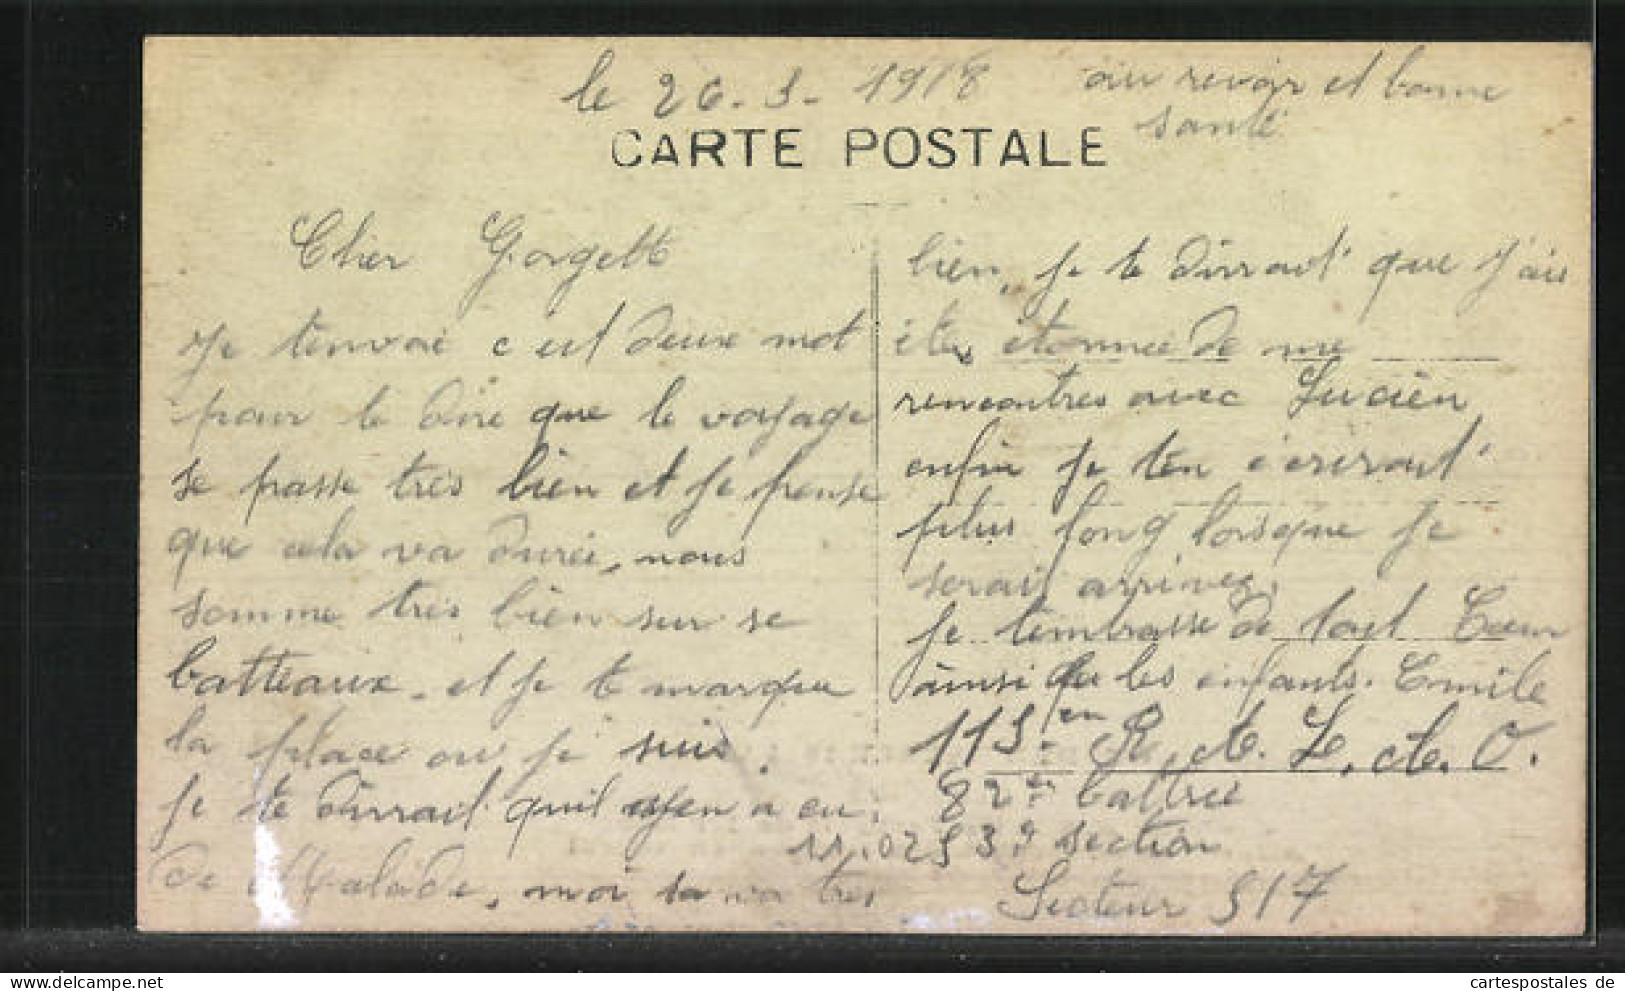 le 26-5-1918
au revoir et bonne
santé
CARTE POSTALE
Cher Gorgette
Je tenvoie c est deux mot
pour te dire que le voyage
se passe très bien et je pense
que cela va durée, nous
somme très bien sur se
batteaux. et je te marque
la place ou je suis.
je te dirrait quil en a eu.
de Malade, moi sa va tres
bien, je te dirrait que j'ais
étes étonnée de me
rencontres avec Lucien,
enfin je ten écrirait
plus long lorsque je
serais arrivez.
je tembrasse de tout Cœur
ainsi que les enfants. Emile
115en R. A. L. A. O.
82en battrie
11.025 3e section
Secteur 517
cartespostales de